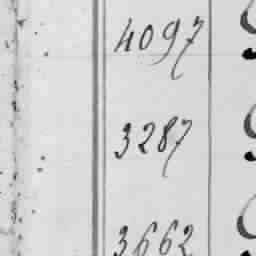 4097
3287
3662